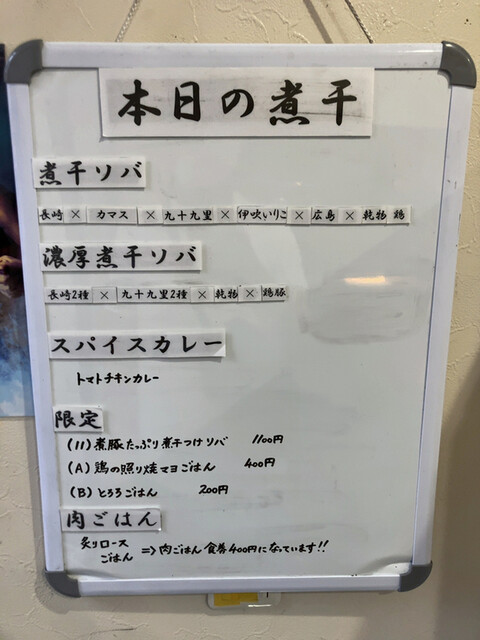 本日の煮干
煮干ソバ
長崎×カマス×九十九里×伊吹いりこ×広島×乾物 鶏
濃厚煮干ソバ
長崎2種×九十九里2種×乾物×鶏豚
スパイスカレー
トマトチキンカレー
限定
(11)煮豚たっぷり煮干つけソバ 1100円
(A)鶏の照り焼マヨごはん 400円
(B)とろろごはん 200円
肉ごはん
炙りロース
ごはん ⇒肉ごはん食券400円になっています!!